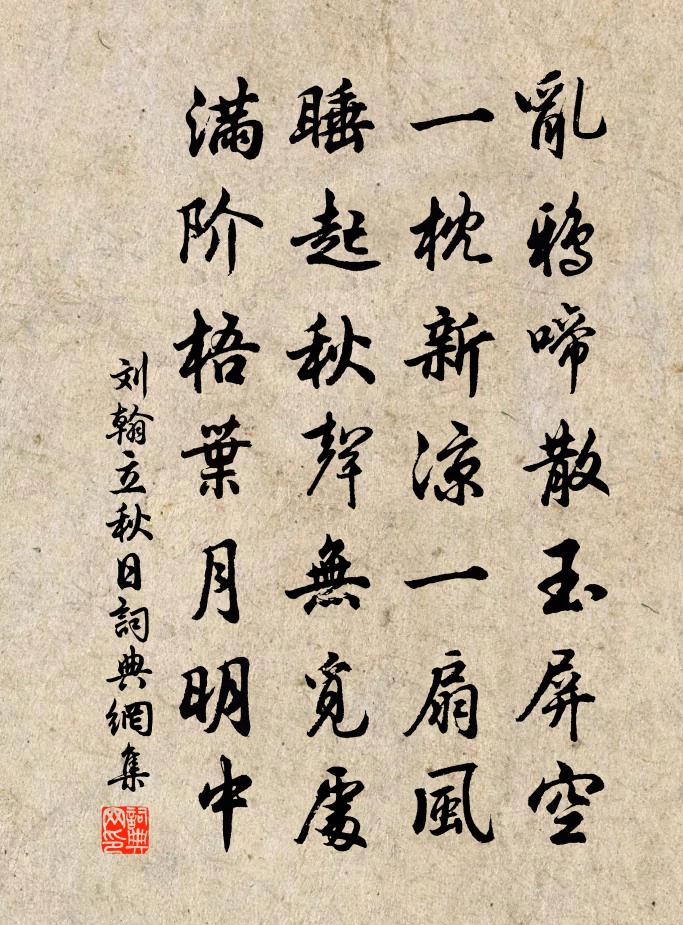 亂鴉啼散玉屏空
一枕新涼一扇風
睡起秋聲無覓處
滿阶梧葉月明中
刘翰立秋日詞典網集
詞典网印